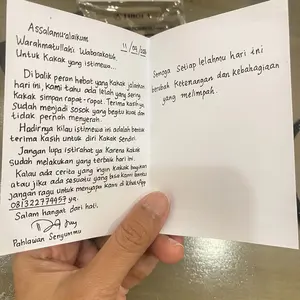 Assalamu'alaikum
Warahmatullahi Wabarakatuh
Untuk Kakak yang istimewa...
Di balik peran hebat yang Kakak jalankan
hari ini, kami tahu ada lelah yang sering
Kakak simpan rapat-rapat. Terima kasih ya
Sudah menjadi sosok yang begitu kuat dan
tidak pernah menyerah.
Hadirnya kilau istimewa ini adalah bentuk
terima kasih untuk diri Kakak sendiri
Jangan lupa istirahat ya Karena Kakak
sudah melakukan yang terbaik hari ini.
Kalau ada cerita yang ingin Kakak bagikan
atau jika ada sesuatu yang bisa kami bantu
jangan ragu untuk menyapa kami di WhatsApp
081322779957 ya.
Salam hangat dari hati.
Pahlawan Senyummu
Semoga setiap lelahmu hari ini
berubah Ketenangan dan kebahagiaan
yang melimpah.